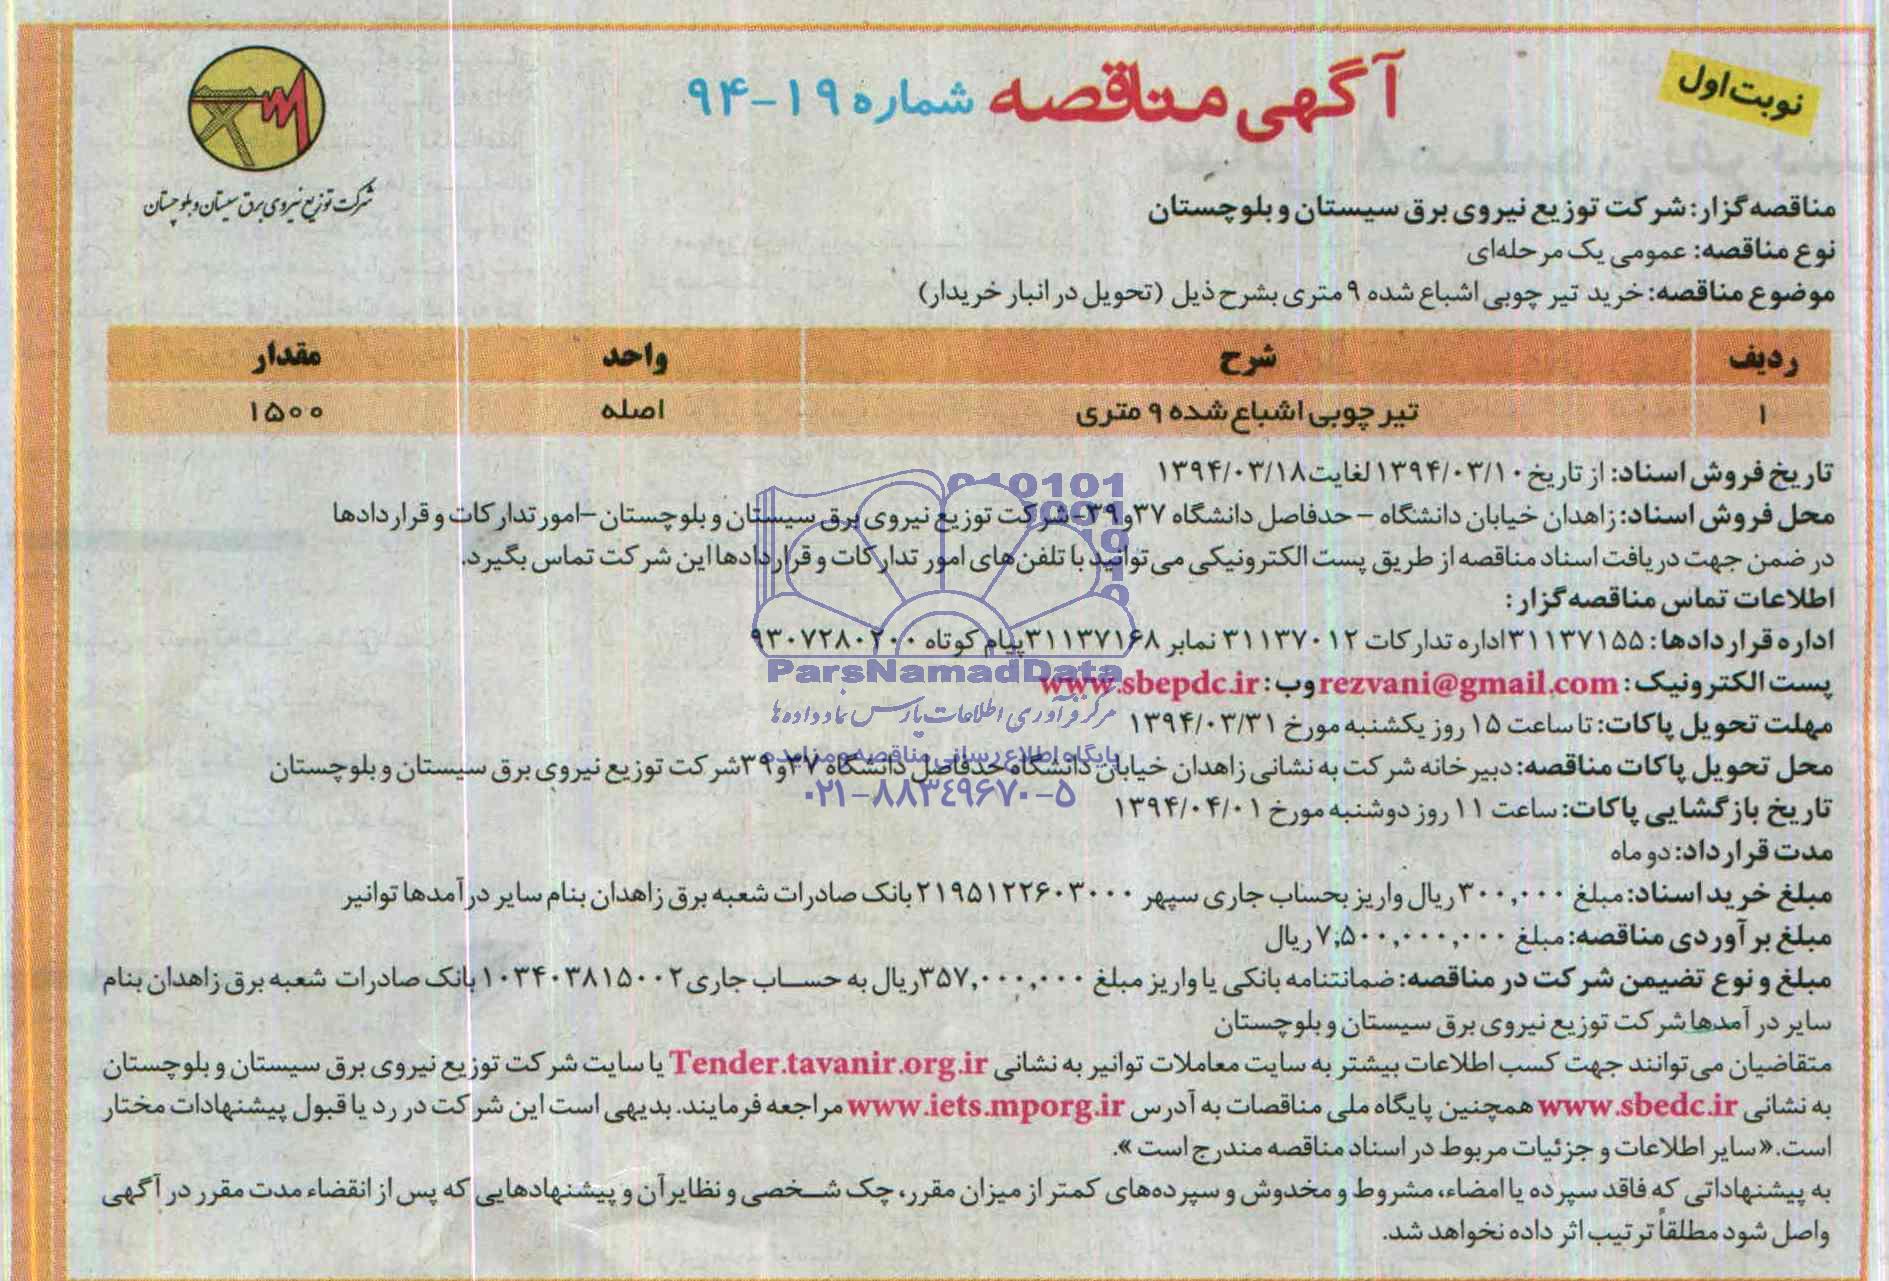 نوبت اول
آگهی مناقصه شماره ۱۹-۹۴
شرکت توزیع نیروی برق سیستان و بلوچستان
مناقصه گزار: شرکت توزیع نیروی برق سیستان و بلوچستان
نوع مناقصه: عمومی یک مرحله‌ای
موضوع مناقصه: خرید تیر چوبی اشباع شده ۹ متری بشرح ذیل (تحویل در انبار خریدار)
ردیف شرح واحد مقدار
۱ تیر چوبی اشباع شده ۹ متری اصله ۱۵۰۰
تاریخ فروش اسناد: از تاریخ ۱۳۹۴/۰۳/۱۰ لغایت ۱۳۹۴/۰۳/۱۸
محل فروش اسناد: زاهدان خیابان دانشگاه – حدفاصل دانشگاه ۳۷ و ۳۹-شرکت توزیع نیروی برق سیستان و بلوچستان –امور تدارکات و قراردادها
در ضمن جهت دریافت اسناد مناقصه از طریق پست الکترونیکی می‌توانید با تلفن‌های امور تدارکات و قراردادها این شرکت تماس بگیرد.
اطلاعات تماس مناقصه گزار:
اداره قراردادها: ۳۱۱۳۷۱۵۵ اداره تدارکات ۳۱۱۳۷۰۱۲ نمابر ۳۱۱۳۷۱۶۸ پیام کوتاه ۹۳۰۷۲۸۰۲۰۰
پست الکترونیک: rezvani@gmail.com وب: www.sbepdc.ir
مهلت تحویل پاکات: تا ساعت ۱۵ روز یکشنبه مورخ ۱۳۹۴/۰۳/۳۱
محل تحویل پاکات مناقصه: دبیرخانه شرکت به نشانی زاهدان خیابان دانشگاه حدفاصل دانشگاه ۳۷ و ۳۹ شرکت توزیع نیروی برق سیستان و بلوچستان
تاریخ بازگشایی پاکات: ساعت ۱۱ روز دوشنبه مورخ ۱۳۹۴/۰۴/۰۱
مدت قرارداد: دو ماه
مبلغ خرید اسناد: مبلغ ۳۰۰,۰۰۰ ریال واریز بحساب جاری سپهر ۲۱۹۵۱۲۲۶۰۳۰۰۰ بانک صادرات شعبه برق زاهدان بنام سایر درآمدها توانیر
مبلغ برآوردی مناقصه: مبلغ ۷,۵۰۰,۰۰۰,۰۰۰ ریال
مبلغ و نوع تضیمن شرکت در مناقصه: ضمانتنامه بانکی یا واریز مبلغ ۳۵۷,۰۰۰,۰۰۰ ریال به حساب جاری ۱۰۳۴۰۳۸۱۵۰۰۲ بانک صادرات شعبه برق زاهدان بنام
سایر درآمدها شرکت توزیع نیروی برق سیستان و بلوچستان
متقاضیان می‌توانند جهت کسب اطلاعات بیشتر به سایت معاملات توانیر به نشانی Tender.tavanir.org.ir یا سایت شرکت توزیع نیروی برق سیستان و بلوچستان
به نشانی www.sbedc.ir همچنین پایگاه ملی مناقصات به آدرس www.iets.mporg.ir مراجعه فرمایند. بدیهی است این شرکت در رد یا قبول پیشنهادات مختار
است. «سایر اطلاعات و جزئیات مربوط در اسناد مناقصه مندرج است».
به پیشنهاداتی که فاقد سپرده یا امضاء، مشروط و مخدوش و سپرده‌های کمتر از میزان مقرر، چک شخصی و نظایر آن و پیشنهادهایی که پس از انقضاء مدت مقرر در آگهی
واصل شود مطلقاً ترتیب اثر داده نخواهد شد.
ParsNamadData
مرکز فرآوری اطلاعات پارس نماد داده‌ها
پایگاه اطلاع رسانی مناقصه و مزایده
۰۲۱-۸۸۳۴۹۶۷۰-۵